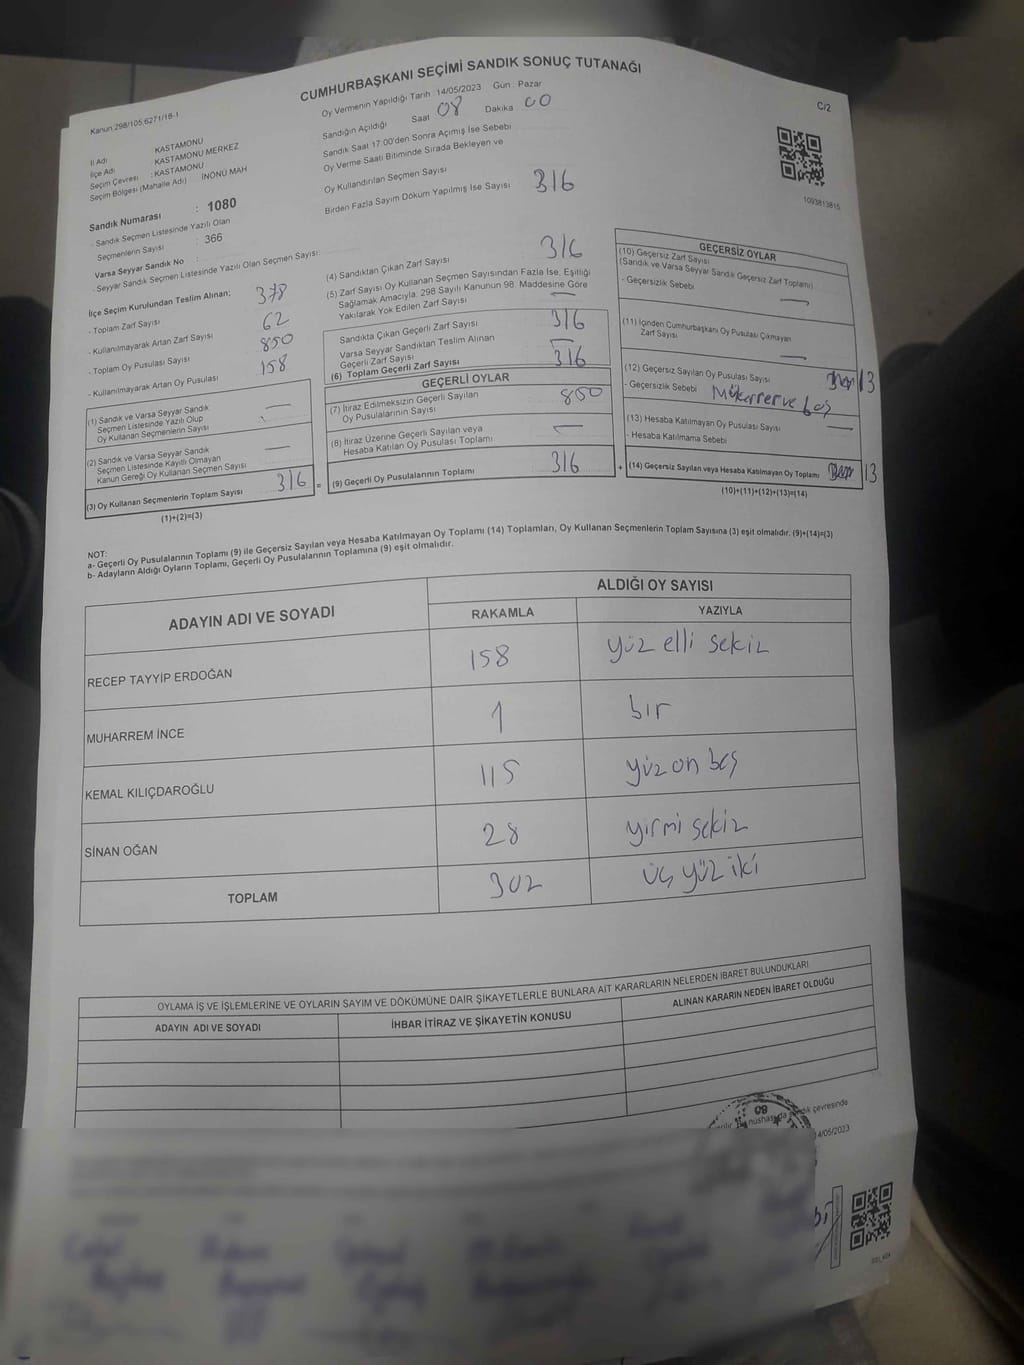 CUMHURBAŞKANI SEÇİMİ SANDIK SONUÇ TUTANAĞI
Kanun 298/105 6271/18-1
Oy Vermenin Yapıldığı Tarih 14/05/2023 Gün : Pazar
C/2
Sandığın Açıldığı Saat 08 Dakika 00
Sandık Saat 17:00'den Sonra Açımış İse Sebebi
Oy Verme Saati Bitiminde Sırada Bekleyen ve
Oy Kullandırılan Seçmen Sayısı
Birden Fazla Sayım Döküm Yapılmış İse Sayısı 316
1093813815
İl Adı KASTAMONU
İlçe Adı KASTAMONU MERKEZ
Seçim Çevresi : KASTAMONU
Seçim Bölgesi (Mahalle Adı) İNÖNÜ MAH
Sandık Numarası : 1080
- Sandık Seçmen Listesinde Yazılı Olan
Seçmenlerin Sayısı : 366
Varsa Seyyar Sandık No :
- Seyyar Sandık Seçmen Listesinde Yazılı Olan Seçmen Sayısı:
İlçe Seçim Kurulundan Teslim Alınan;
- Toplam Zarf Sayısı 378
- Kullanılmayarak Artan Zarf Sayısı 62
- Toplam Oy Pusulası Sayısı 850
- Kullanılmayarak Artan Oy Pusulası 158
(1) Sandık ve Varsa Seyyar Sandık
Seçmen Listesinde Yazılı Olup
Oy Kullanan Seçmenlerin Sayısı —
(2) Sandık ve Varsa Seyyar Sandık
Seçmen Listesinde Kayıtlı Olmayan
Kanun Gereği Oy Kullanan Seçmen Sayısı —
(3) Oy Kullanan Seçmenlerin Toplam Sayısı 316 =
(1)+(2)=(3)
(4) Sandıktan Çıkan Zarf Sayısı 316
(5) Zarf Sayısı Oy Kullanan Seçmen Sayısından Fazla İse, Eşitliği
Sağlamak Amacıyla, 298 Sayılı Kanunun 98. Maddesine Göre
Yakılarak Yok Edilen Zarf Sayısı —
Sandıkta Çıkan Geçerli Zarf Sayısı 316
Varsa Seyyar Sandıktan Teslim Alınan
Geçerli Zarf Sayısı —
(6) Toplam Geçerli Zarf Sayısı 316
GEÇERLİ OYLAR
(7) İtiraz Edilmeksizin Geçerli Sayılan
Oy Pusulalarının Sayısı 850
(8) İtiraz Üzerine Geçerli Sayılan veya
Hesaba Katılan Oy Pusulası Toplamı —
(9) Geçerli Oy Pusulalarının Toplamı 316 +
GEÇERSİZ OYLAR
(10) Geçersiz Zarf Sayısı
(Sandık ve Varsa Seyyar Sandık Geçersiz Zarf Toplamı)
- Geçersizlik Sebebi —
(11) İçinden Cumhurbaşkanı Oy Pusulası Çıkmayan
Zarf Sayısı —
(12) Geçersiz Sayılan Oy Pusulası Sayısı 13
- Geçersizlik Sebebi Mükerrer ve boş
(13) Hesaba Katılmayan Oy Pusulası Sayısı —
- Hesaba Katılmama Sebebi
(14) Geçersiz Sayılan veya Hesaba Katılmayan Oy Toplamı 13
(10)+(11)+(12)+(13)=(14)
NOT:
a- Geçerli Oy Pusulalarının Toplamı (9) ile Geçersiz Sayılan veya Hesaba Katılmayan Oy Toplamı (14) Toplamları, Oy Kullanan Seçmenlerin Toplam Sayısına (3) eşit olmalıdır. (9)+(14)=(3)
b- Adayların Aldığı Oyların Toplamı, Geçerli Oy Pusulalarının Toplamına (9) eşit olmalıdır.
ADAYIN ADI VE SOYADI ALDIĞI OY SAYISI
RAKAMLA YAZIYLA
RECEP TAYYİP ERDOĞAN 158 yüz elli sekiz
MUHARREM İNCE 1 bir
KEMAL KILIÇDAROĞLU 115 yüz on beş
SİNAN OĞAN 28 yirmi sekiz
TOPLAM 302 üç yüz iki
OYLAMA İŞ VE İŞLEMLERİNE VE OYLARIN SAYIM VE DÖKÜMÜNE DAİR ŞİKAYETLERLE BUNLARA AİT KARARLARIN NELERDEN İBARET BULUNDUKLARI
ADAYIN ADI VE SOYADI İHBAR İTİRAZ VE ŞİKAYETİN KONUSU ALINAN KARARIN NEDEN İBARET OLDUĞU
sandık çevresinde
14/05/2023